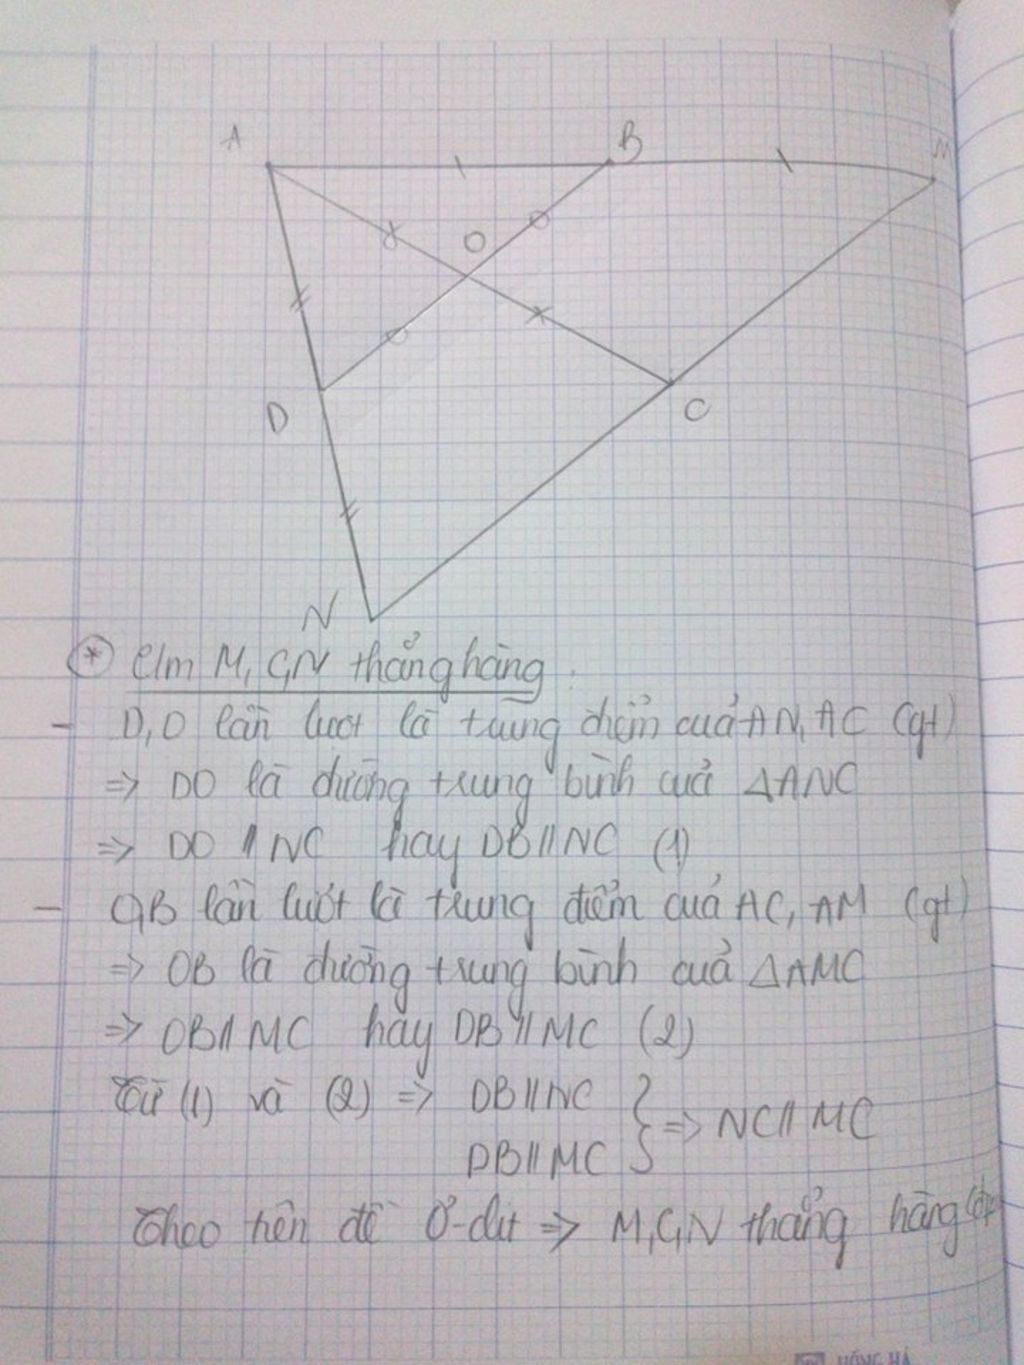 A
B
M
O
D
C
N
* C/m M, C, N thẳng hàng.
- D, O lần lượt là trung điểm của AN, AC (gt)
=> DO là đường trung bình của ΔANC
=> DO // NC hay DB // NC (1)
- O, B lần lượt là trung điểm của AC, AM (gt)
=> OB là đường trung bình của ΔAMC
=> OB // MC hay DB // MC (2)
Từ (1) và (2) => DB // NC
DB // MC } => NC // MC
Theo tiên đề Ơ-clit => M, C, N thẳng hàng
HỒNG HÀ